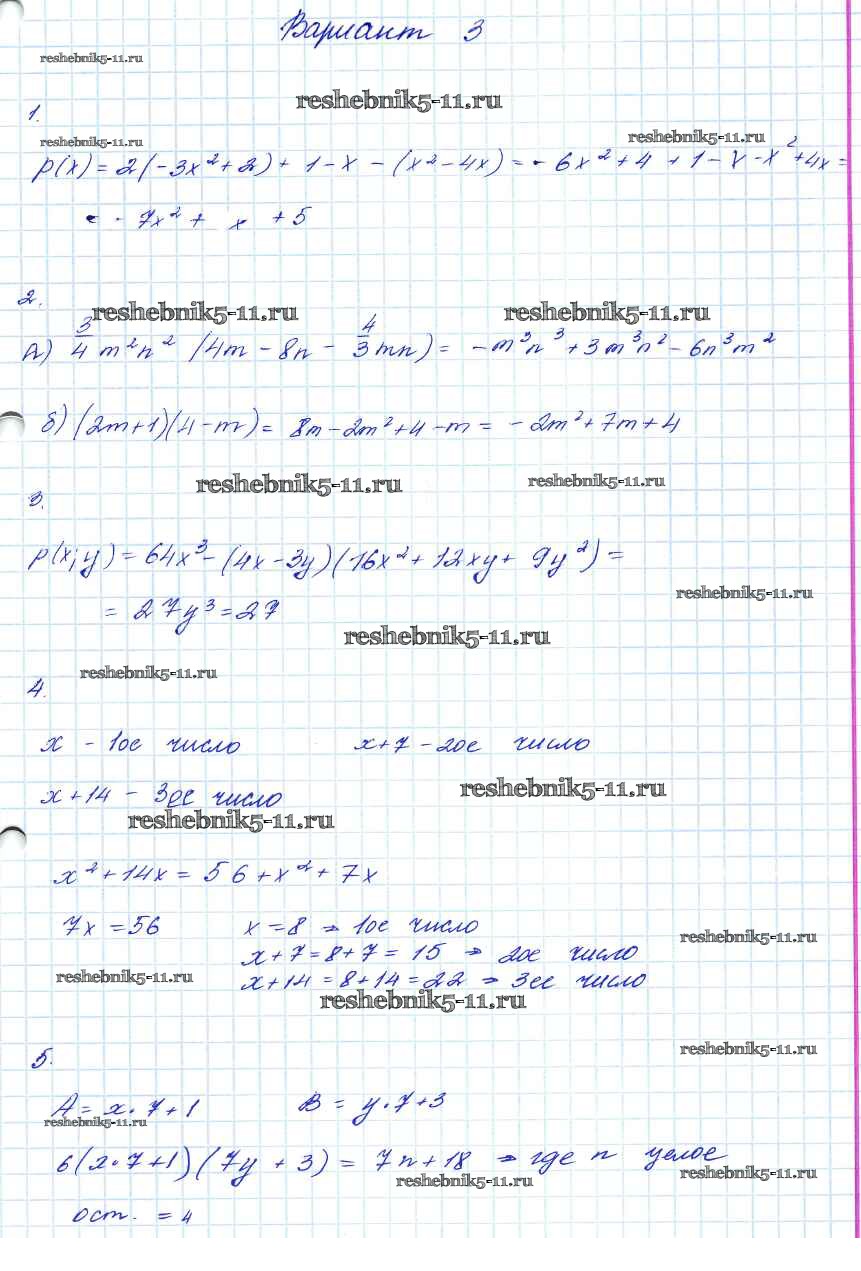 Вариант 3
reshebnik5-11.ru
reshebnik5-11.ru
1.
reshebnik5-11.ru
reshebnik5-11.ru
p(x) = 2(-3x²+2) + 1-x - (x²-4x) = -6x²+4 + 1-x-x²+4x =
= -7x² + x + 5
2.
reshebnik5-11.ru reshebnik5-11.ru
А) 3/4 m²n² (4m - 8n - 4/3 mn) = -m³n³+3m³n²-6n³m²
б) (2m+1)(4-m) = 8m-2m²+4-m = -2m²+7m+4
reshebnik5-11.ru reshebnik5-11.ru
3.
p(x;y) = 64x³-(4x-3y)(16x²+12xy+ 9y²) =
reshebnik5-11.ru
= 27y³=27
reshebnik5-11.ru
reshebnik5-11.ru
4.
x - 1ое число x+7 - 2ое число
reshebnik5-11.ru
x+14 - 3ее число
reshebnik5-11.ru
x²+14x = 56+x²+7x
7x = 56 x=8 → 1ое число
reshebnik5-11.ru
x+7=8+7= 15 → 2ое число
reshebnik5-11.ru
x+14=8+14=22 → 3ее число
reshebnik5-11.ru
reshebnik5-11.ru
5.
A= x·7+1 B = y·7+3
reshebnik5-11.ru
6(x·7+1)(7y+3) = 7n+18 → где n целое
reshebnik5-11.ru reshebnik5-11.ru
ост. = 4